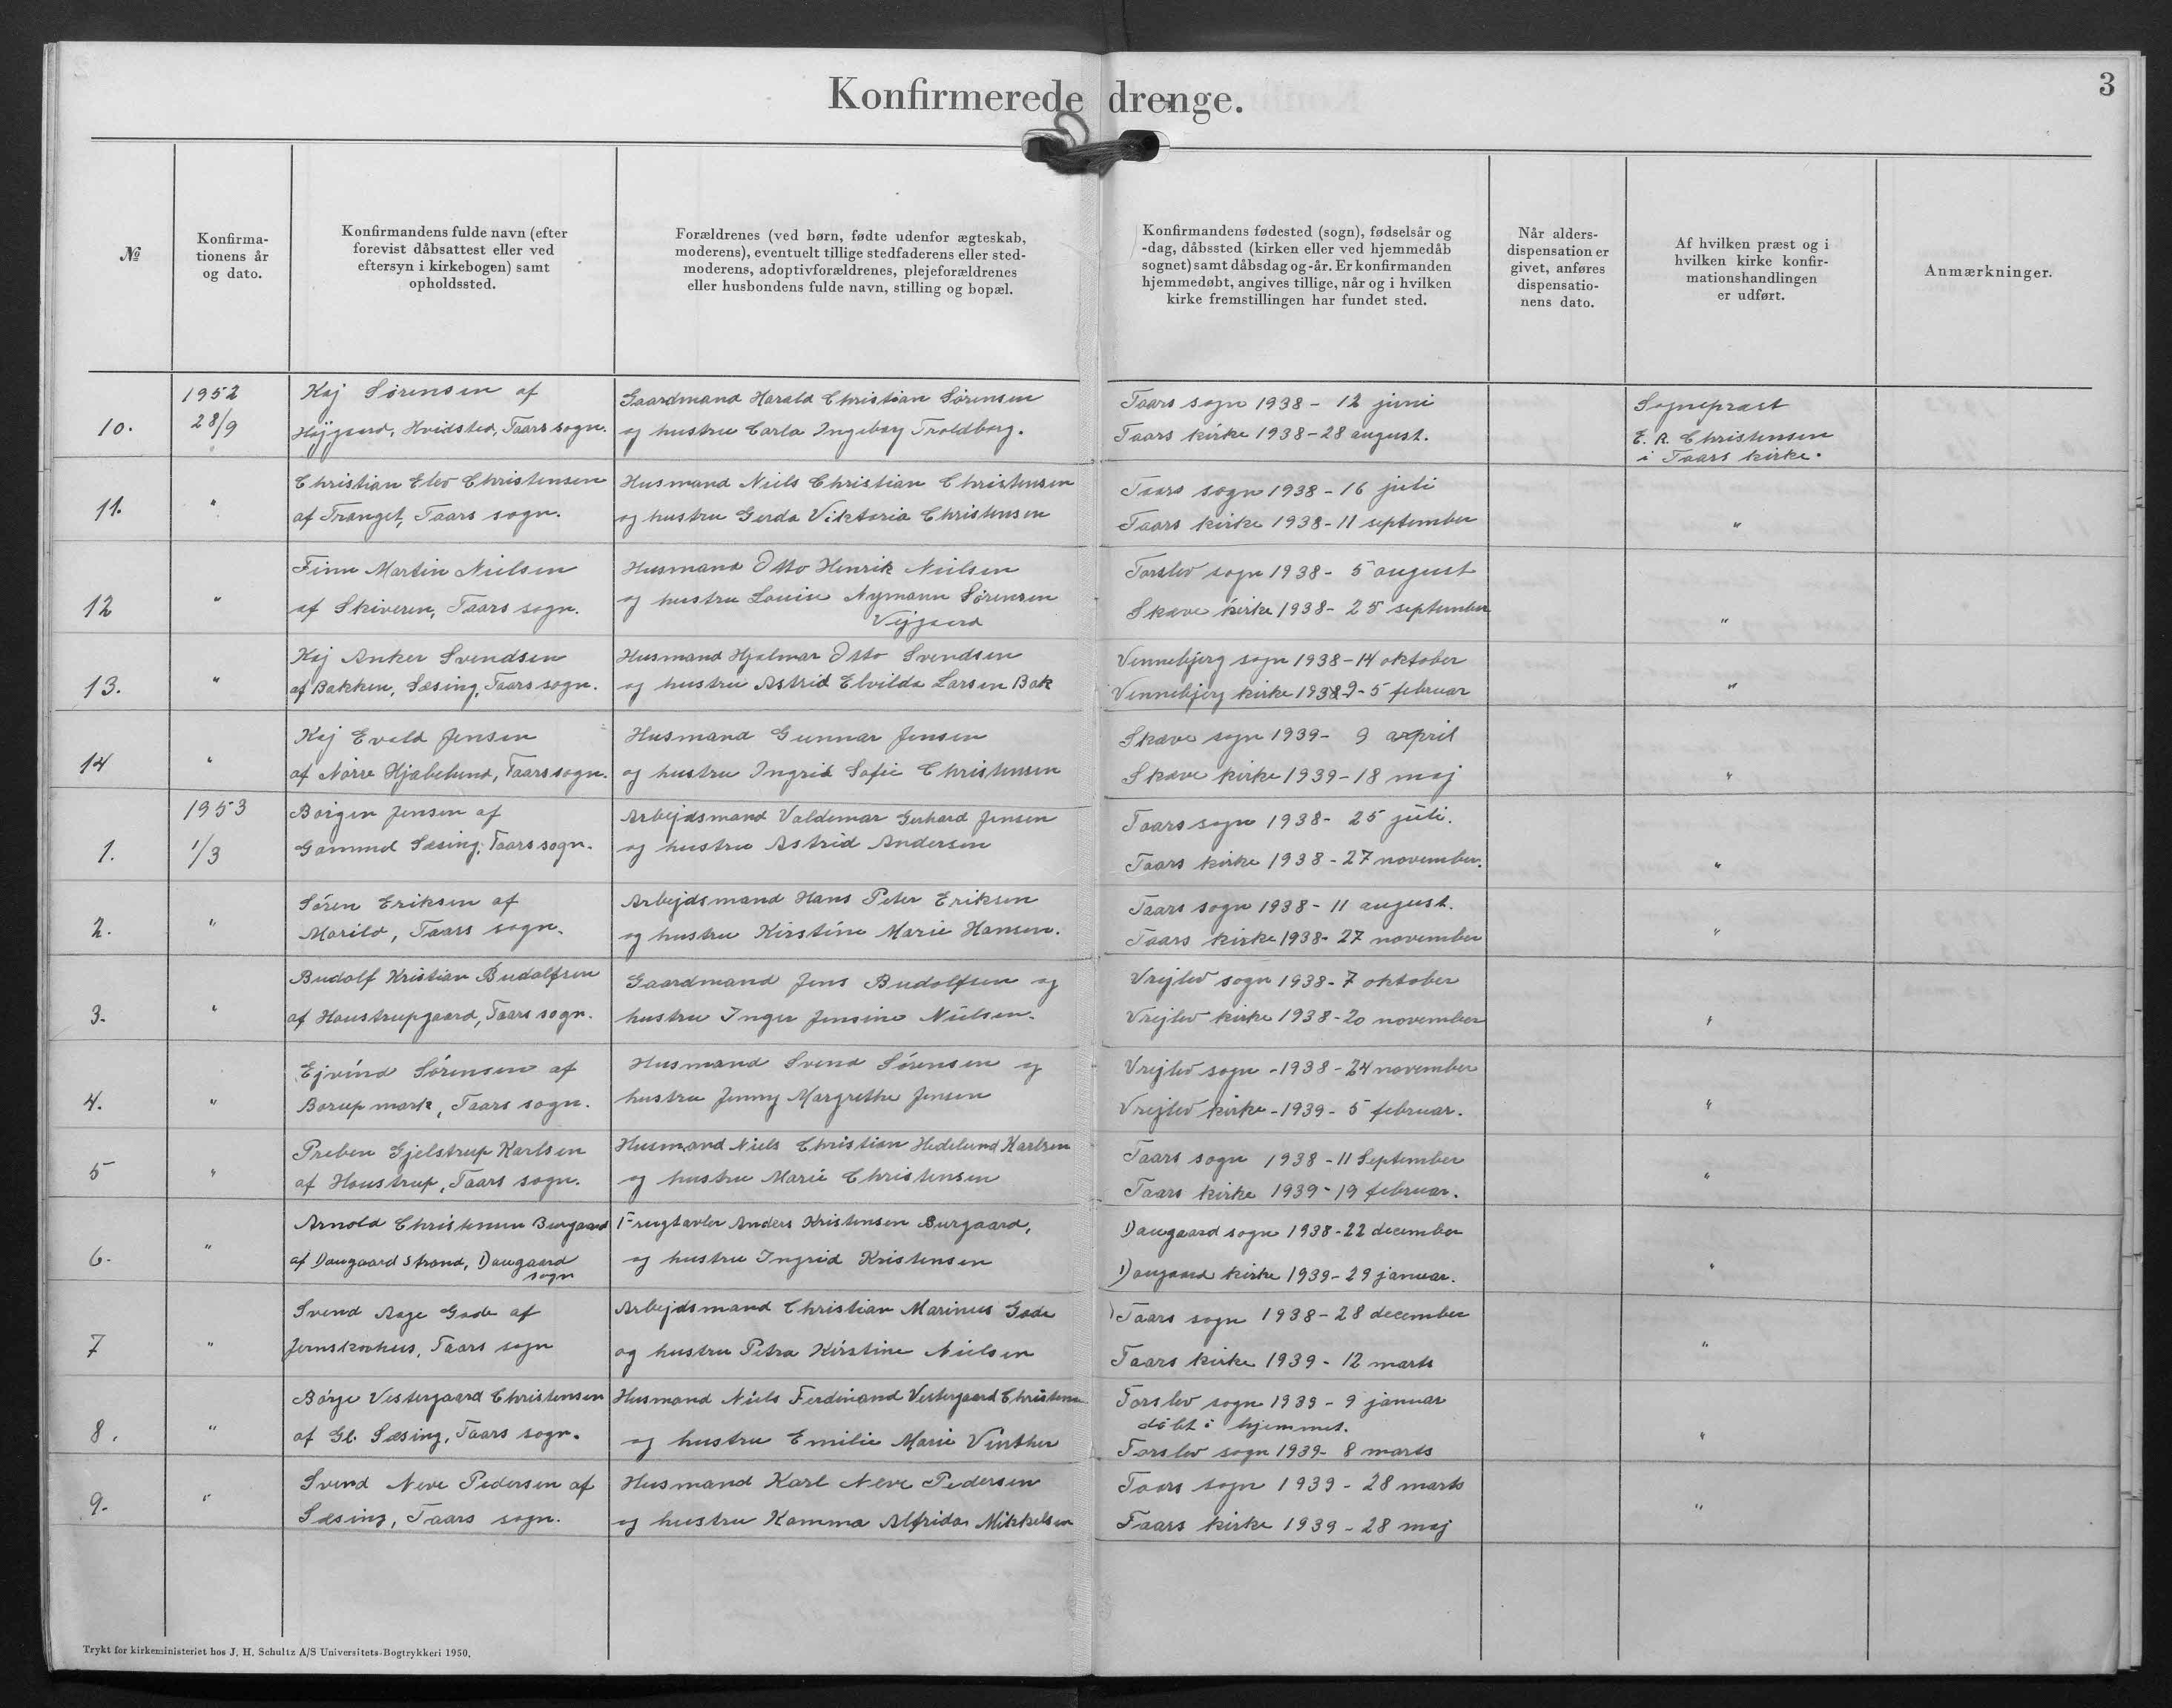 Konfirmerede drenge.
3
№
Konfirma-
tionens år
og dato.
Konfirmandens fulde navn (efter
forevist dåbsattest eller ved
eftersyn i kirkebogen) samt
opholdssted.
Forældrenes (ved børn, fødte udenfor ægteskab,
moderens), eventuelt tillige stedfaderens eller sted-
moderens, adoptivforældrenes, plejeforældrenes
eller husbondens fulde navn, stilling og bopæl.
Konfirmandens fødested (sogn), fødselsår og
-dag, dåbssted (kirken eller ved hjemmedåb
sognet) samt dåbsdag og -år. Er konfirmanden
hjemmedøbt, angives tillige, når og i hvilken
kirke fremstillingen har fundet sted.
Når alders-
dispensation er
givet, anføres
dispensatio-
nens dato.
Af hvilken præst og i
hvilken kirke konfir-
mationshandlingen
er udført.
Anmærkninger.
10.
1952
28/9
Kaj Sørensen af
Højgaard, Hvidsted, Taars sogn.
Gaardmand Harald Christian Sørensen
og hustru Carla Ingeborg Troldborg.
Taars sogn 1938 - 12 juni
Taars kirke 1938 - 28 august.
Sognepræst
E. R. Christensen
i Taars kirke.
11.
"
Christian Elev Christensen
af Tranget, Taars sogn.
Husmand Niels Christian Christensen
og hustru Gerda Viktoria Christensen
Taars sogn 1938 - 16 juli
Taars kirke 1938 - 11 september
"
12
"
Finn Martin Nielsen
af Skiveren, Taars sogn.
Husmand Otto Henrik Nielsen
og hustru Louise Nymann Sørensen
Vejgaard
Torslev sogn 1938 - 5 august
Skæve kirke 1938 - 25 september
"
13.
"
Kaj Anker Svendsen
af Bakken, Sæsing, Taars sogn.
Husmand Hjalmar Otto Svendsen
og hustru Astrid Elvilda Larsen Bak
Vennebjerg sogn 1938 - 14 oktober
Vennebjerg kirke 1939 - 5 februar
"
14
"
Kaj Evald Jensen
af Nørre Hjæbelund, Taars sogn.
Husmand Gunnar Jensen
og hustru Ingrid Sofie Christensen
Skæve sogn 1939 - 9 april
Skæve kirke 1939 - 18 maj
"
1.
1953
1/3
Børgen Jensen af
Gammel Sæsing, Taars sogn.
Arbejdsmand Valdemar Gerhard Jensen
og hustru Astrid Andersen
Taars sogn 1938 - 25 juli.
Taars kirke 1938 - 27 november.
"
2.
"
Søren Eriksen af
Marild, Taars sogn.
Arbejdsmand Hans Peter Eriksen
og hustru Kirstine Marie Hansen.
Taars sogn 1938 - 11 august.
Taars kirke 1938 - 27 november
"
3.
"
Budolf Kristian Budolfsen
af Haustrupgaard, Taars sogn.
Gaardmand Jens Budolfsen og
hustru Inger Jensine Nielsen.
Vrejlev sogn 1938 - 7 oktober
Vrejlev kirke 1938 - 20 november
"
4.
"
Ejvind Sørensen af
Borup mark, Taars sogn.
Husmand Svend Sørensen og
hustru Jenny Margrethe Jensen
Vrejlev sogn - 1938 - 24 november
Vrejlev kirke - 1939 - 5 februar.
"
5
"
Preben Gjelstrup Karlsen
af Houstrup, Taars sogn.
Husmand Niels Christian Hedelund Karlsen
og hustru Marie Christensen
Taars sogn 1938 - 11 September
Taars kirke 1939 - 19 februar.
"
6.
"
Arnold Christensen Burgaard
af Daugaard Strand, Daugaard
sogn
Frugtavler Anders Kristensen Burgaard,
og hustru Ingrid Kristensen
Daugaard sogn 1938 - 22 december
Daugaard kirke 1939 - 29 januar.
"
7
"
Svend Aage Gade af
Jernskovhus, Taars sogn
Arbejdsmand Christian Marinus Gade
og hustru Petra Kirstine Nielsen
Taars sogn 1938 - 28 december
Taars kirke 1939 - 12 marts
"
8.
"
Børge Vestergaard Christensen
af Gl. Sæsing, Taars sogn.
Husmand Niels Ferdinand Vestergaard Christensen
og hustru Emilie Marie Vinther
Torslev sogn 1939 - 9 januar
døbt i hjemmet.
Torslev sogn 1939 - 8 marts
"
9.
"
Svend Neve Pedersen af
Sæsing, Taars sogn.
Husmand Karl Neve Pedersen
og hustru Kamma Alfrida Mikkelsen
Taars sogn 1939 - 28 marts
Taars kirke 1939 - 28 maj
"
Trykt for kirkeministeriet hos J. H. Schultz A/S Universitets-Bogtrykkeri 1950.